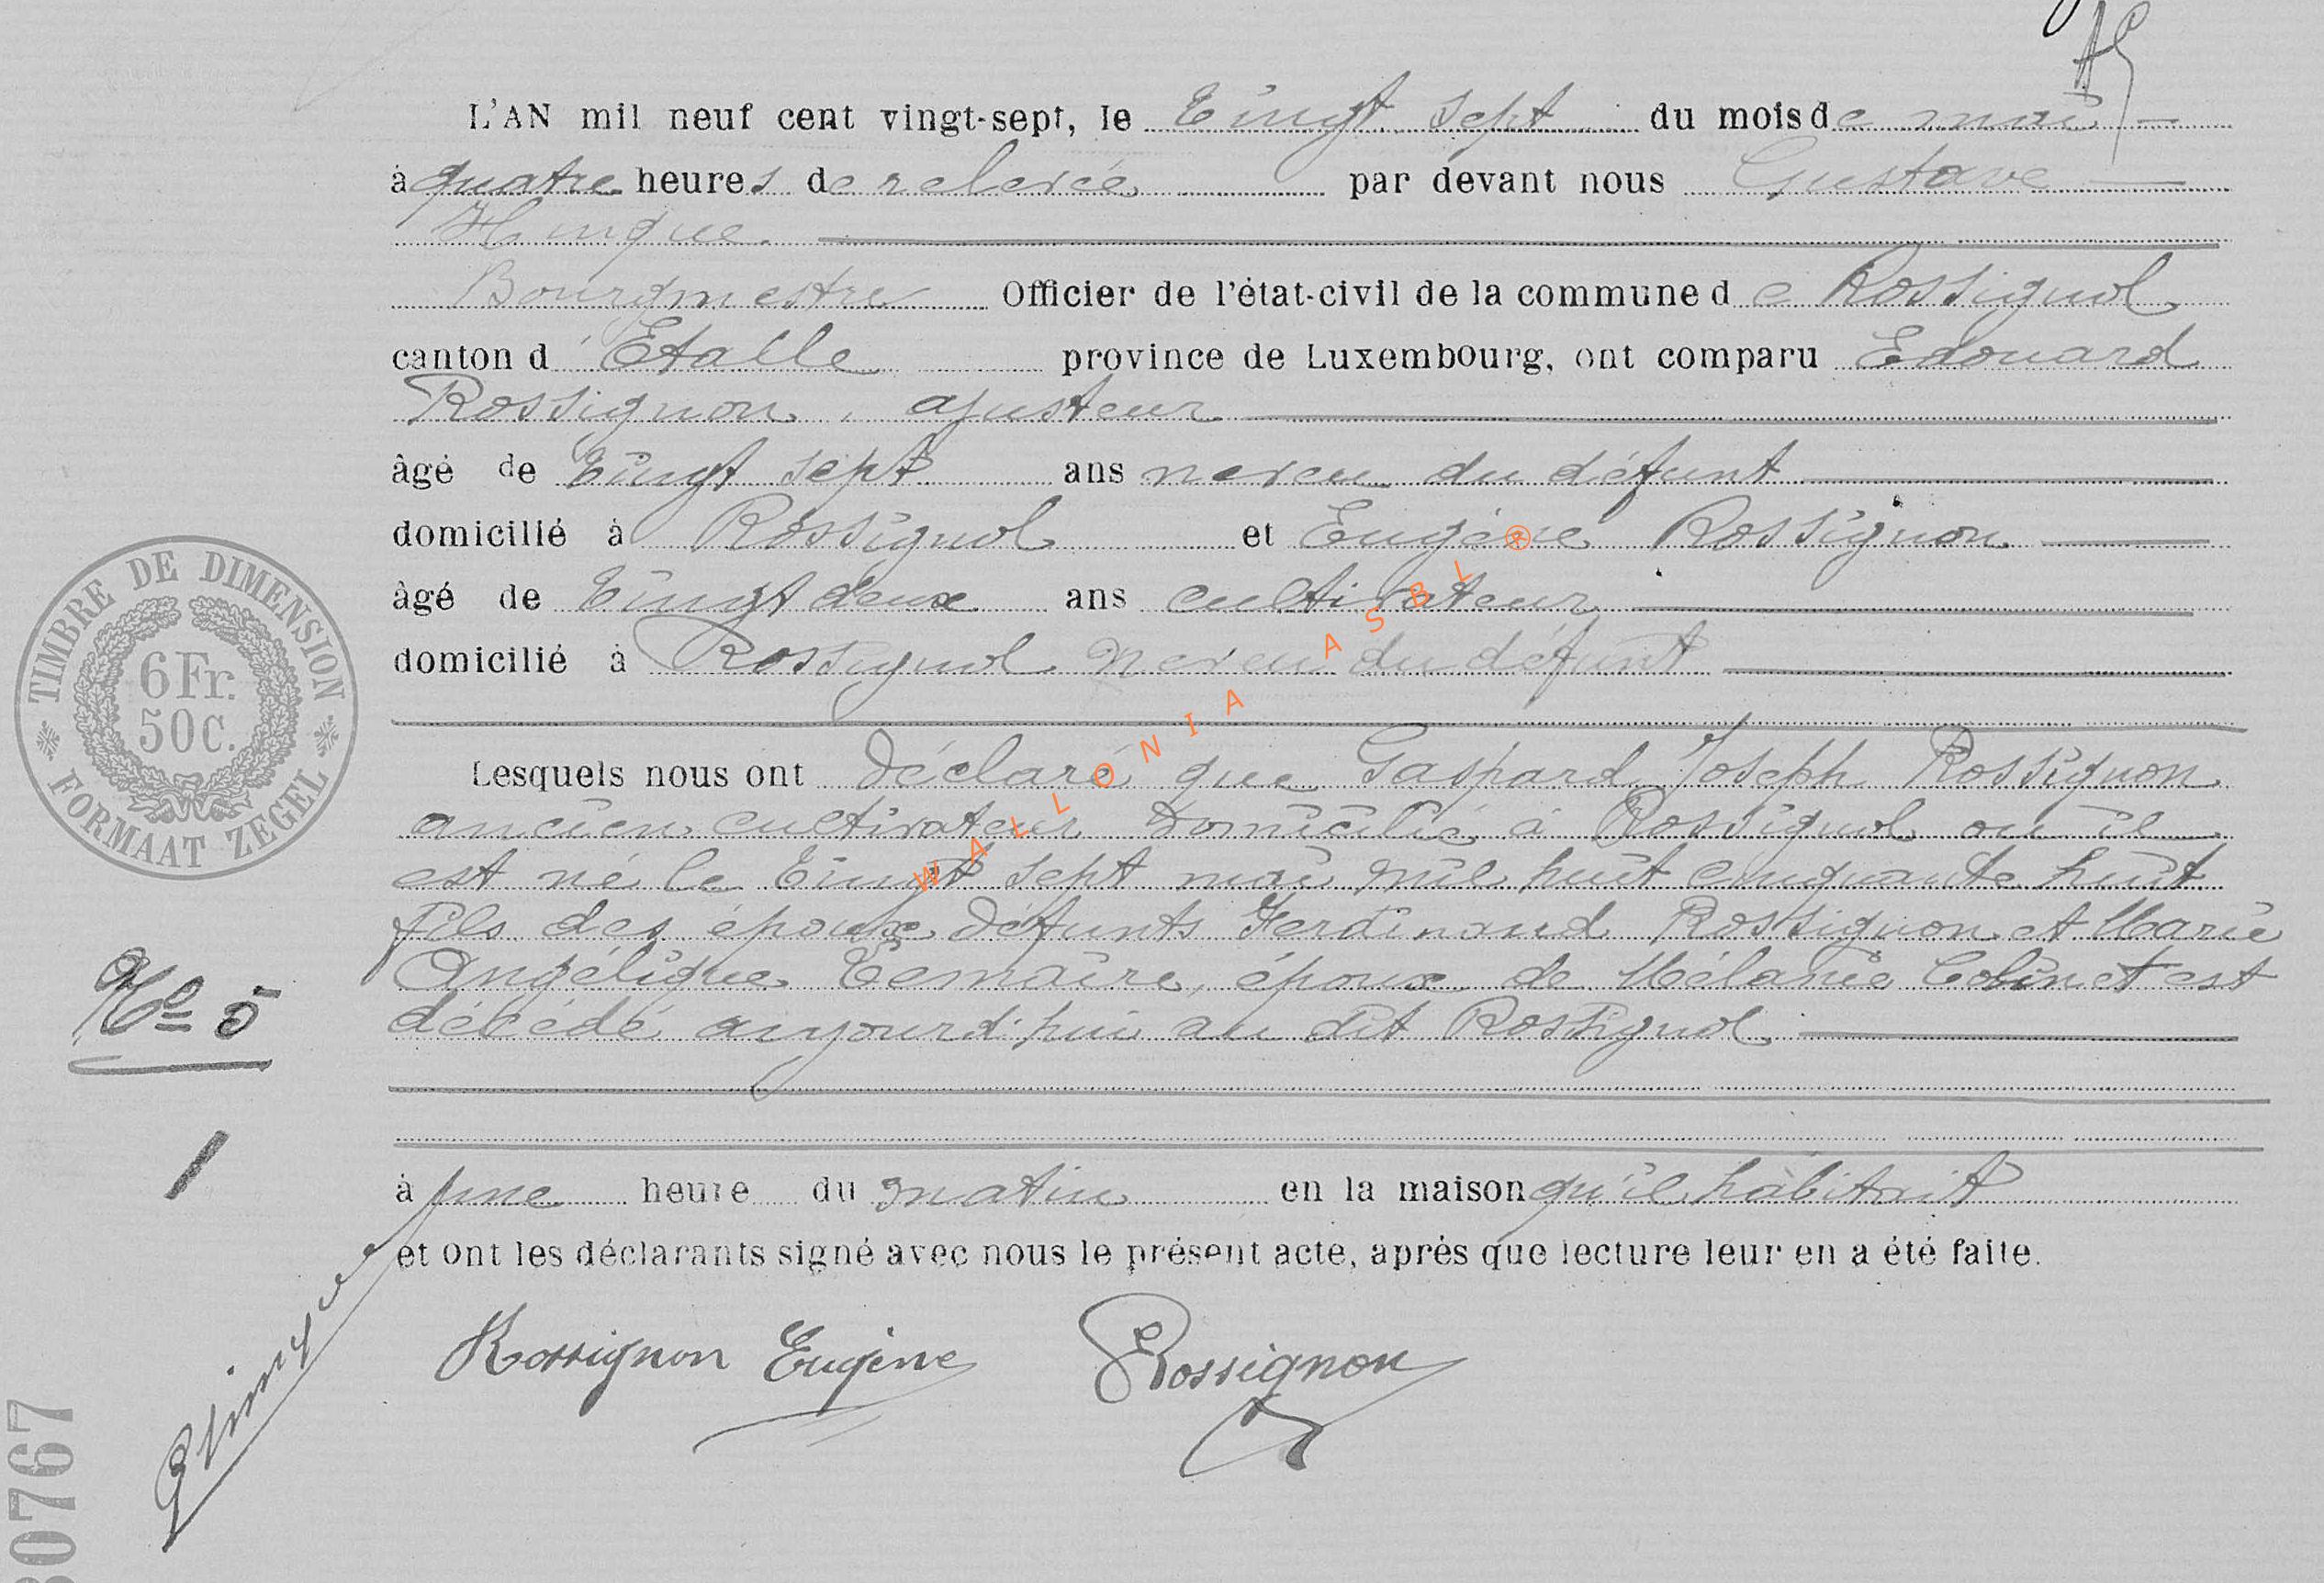 L'AN mil neuf cent vingt-sept, le Vingt sept du mois de mai
à quatre heures de relevée par devant nous Gustave
Hinque
Bourgmestre Officier de l'état-civil de la commune de Rossignol
canton d'Etalle province de Luxembourg, ont comparu Edouard
Rossignon, ajusteur
âgé de Vingt sept ans neveu du défunt
domicilié à Rossignol et Eugène Rossignon
âgé de Vingt deux ans cultivateur
domicilié à Rossignol neveu du défunt
Lesquels nous ont déclaré que Gaspard Joseph Rossignon
ancien cultivateur domicilié à Rossignol où il
est né le Vingt sept mai mil huit cinquante huit
fils des époux défunts Ferdinand Rossignon et Marie
Angélique Lemaire, époux de Mélanie Colinet est
décédé aujourd'hui au dit Rossignol
à une heure du matin en la maison qu'il habitait
et ont les déclarants signé avec nous le présent acte, après que lecture leur en a été faite.
Rossignon Eugène Rossignon
TIMBRE DE DIMENSION
6 Fr.
50 C.
FORMAAT ZEGEL
No 5
1
30767
WALLONIA ASBL ®